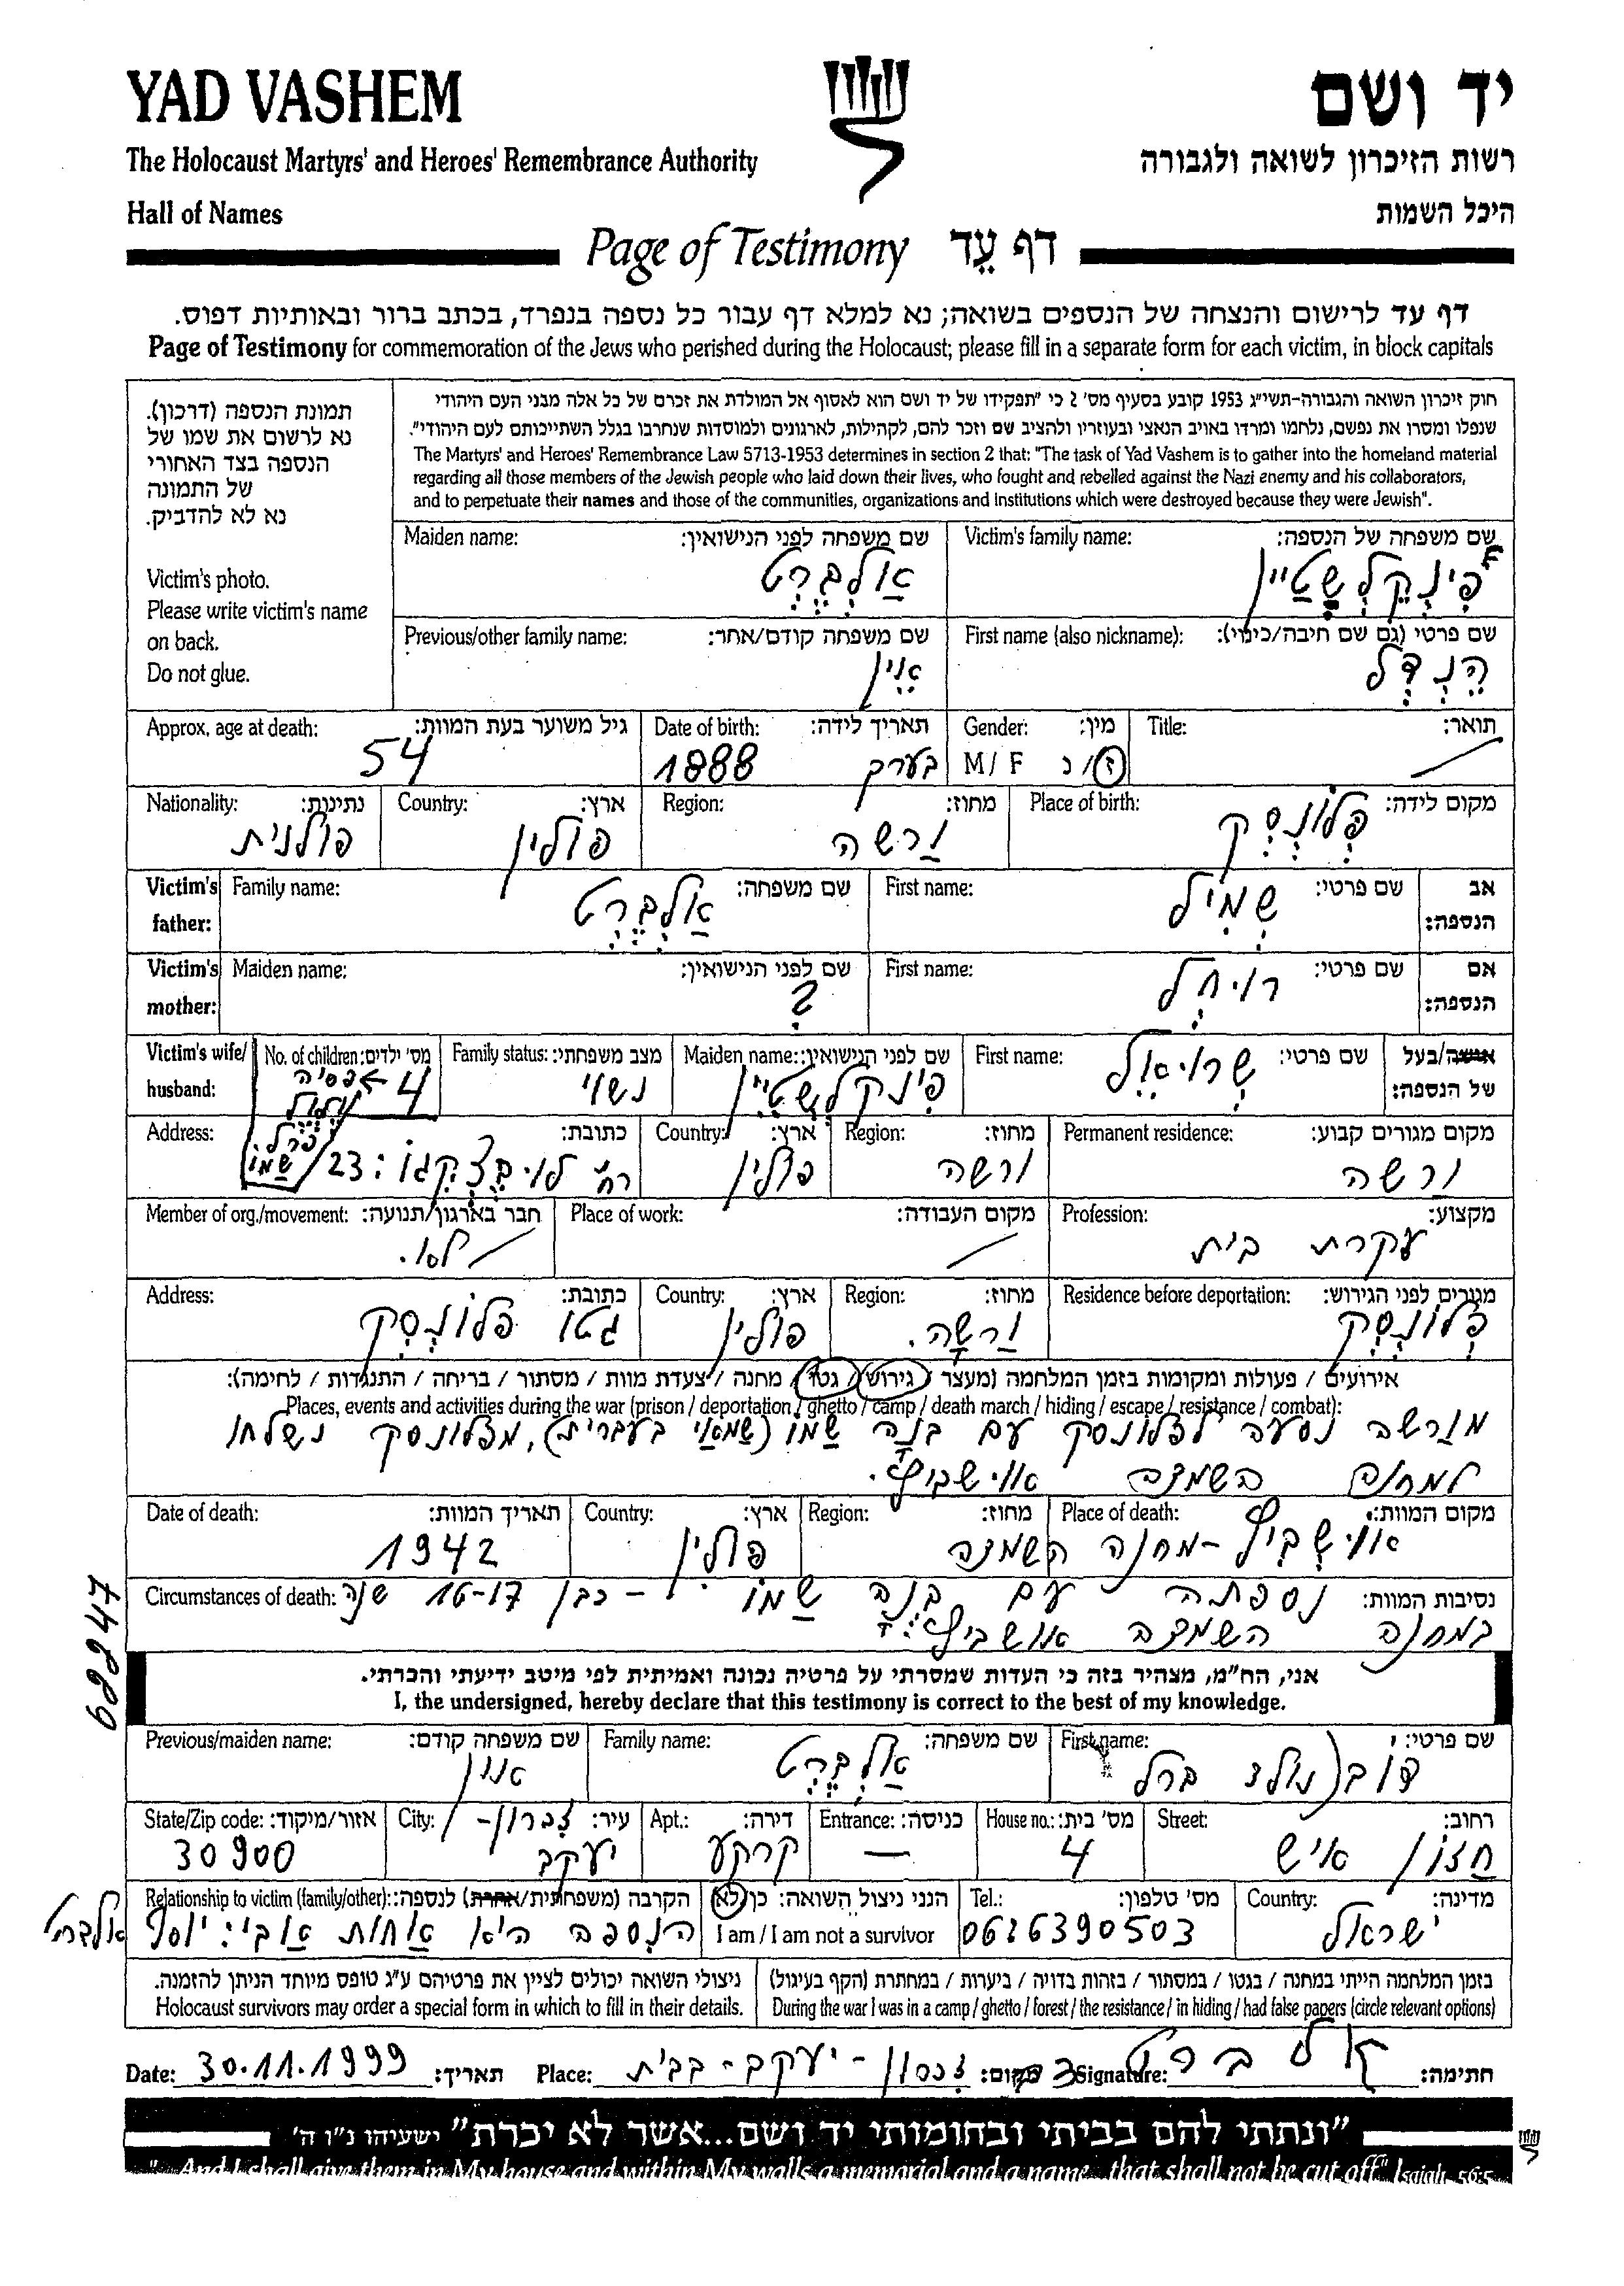 YAD VASHEM
יד ושם
The Holocaust Martyrs' and Heroes' Remembrance Authority
רשות הזיכרון לשואה ולגבורה
Hall of Names
היכל השמות
Page of Testimony דף עֵד
דף עד לרישום והנצחה של הנספים בשואה; נא למלא דף עבור כל נספה בנפרד, בכתב ברור ובאותיות דפוס.
Page of Testimony for commemoration of the Jews who perished during the Holocaust; please fill in a separate form for each victim, in block capitals
חוק זיכרון השואה והגבורה-תשי"ג 1953 קובע בסעיף מס' 2 כי "תפקידו של יד ושם הוא לאסוף אל המולדת את זכרם של כל אלה מבני העם היהודי
שנפלו ומסרו את נפשם, נלחמו ומרדו באויב הנאצי ובעוזריו ולהציב שם וזכר להם, לקהילות, לארגונים ולמוסדות שנחרבו בגלל השתייכותם לעם היהודי".
The Martyrs' and Heroes' Remembrance Law 5713-1953 determines in section 2 that: "The task of Yad Vashem is to gather into the homeland material
regarding all those members of the Jewish people who laid down their lives, who fought and rebelled against the Nazi enemy and his collaborators,
and to perpetuate their names and those of the communities, organizations and institutions which were destroyed because they were Jewish".
תמונת הנספה (דרכון).
נא לרשום את שמו של
הנספה בצד האחורי
של התמונה
נא לא להדביק.
Victim's photo.
Please write victim's name
on back.
Do not glue.
Victim's family name: שם משפחה של הנספה:
פינקלשטיין
Maiden name: שם משפחה לפני הנישואין:
אלברט
First name (also nickname): שם פרטי (גם שם חיבה/כינוי):
הנדל
Previous/other family name: שם משפחה קודם/אחר:
אין
Title: תואר:
Gender: מין:
M / F ז / נ
Date of birth: תאריך לידה:
בערך 1888
Approx. age at death: גיל משוער בעת המוות:
54
Place of birth: מקום לידה:
פלונסק
Region: מחוז:
ורשה
Country: ארץ:
פולין
Nationality: נתינות:
פולנית
Victim's father: אב הנספה:
First name: שם פרטי:
שמיל
Family name: שם משפחה:
אלברט
Victim's mother: אם הנספה:
First name: שם פרטי:
רויחל
Maiden name: שם לפני הנישואין:
?
Victim's wife/ husband: אישה/בעל של הנספה:
First name: שם פרטי:
שרויאל
Maiden name: שם לפני הנישואין:
פינקלשטיין
Family status: מצב משפחתי:
נשוי
No. of children: מס' ילדים:
4
פרל
שמו
Permanent residence: מקום מגורים קבוע:
ורשה
Region: מחוז:
ורשה
Country: ארץ:
פולין
Address: כתובת:
רח' 23
Profession: מקצוע:
עקרת בית
Place of work: מקום העבודה:
Member of org./movement: חבר בארגון/תנועה:
לא.
Residence before deportation: מגורים לפני הגירוש:
פלונסק
Region: מחוז:
ורשה.
Country: ארץ:
פולין
Address: כתובת:
גטו פלונסק
אירועים / פעולות ומקומות בזמן המלחמה (מעצר / גירוש / גטו / מחנה / צעדת מוות / מסתור / בריחה / התנגדות / לחימה):
Places, events and activities during the war (prison / deportation / ghetto / camp / death march / hiding / escape / resistance / combat):
מורשה נסעה לפלונסק עם בנה שמו (שמאי בעברית), מפלונסק נשלחו
למחנה השמדה אוישביץ.
Place of death: מקום המוות:
אוישביץ - מחנה השמדה
Region: מחוז:
Country: ארץ:
פולין
Date of death: תאריך המוות:
1942
Circumstances of death: נסיבות המוות:
נספתה עם בנה שמו - כבן 16-17 שנה
במחנה השמדה אושביץ.
68247
אני, הח"מ, מצהיר בזה כי העדות שמסרתי על פרטיה נכונה ואמיתית לפי מיטב ידיעתי והכרתי.
I, the undersigned, hereby declare that this testimony is correct to the best of my knowledge.
First name: שם פרטי:
דוב (נולד ברל
Family name: שם משפחה:
אלברט
Previous/maiden name: שם משפחה קודם:
אין
Street: רחוב:
חזון איש
House no.: מס' בית:
4
Entrance: כניסה:
—
Apt.: דירה:
קרקע
City: עיר:
זכרון-
יעקב
State/Zip code: אזור/מיקוד:
30900
Country: מדינה:
ישראל
Tel.: מס' טלפון:
066390503
הנני ניצול השואה: כן/לא
I am / I am not a survivor
Relationship to victim (family/other): הקרבה (משפחתית/אחרת) לנספה:
הנספה היא אחות אבי: יוסף אלברט
בזמן המלחמה הייתי במחנה / בגטו / במסתור / בזהות בדויה / ביערות / במחתרת (הקף בעיגול)
During the war I was in a camp / ghetto / forest / the resistance / in hiding / had false papers (circle relevant options)
ניצולי השואה יכולים לציין את פרטיהם ע"ג טופס מיוחד הניתן להזמנה.
Holocaust survivors may order a special form in which to fill in their details.
Date: 30.11.1999 תאריך: Place: זכרון-יעקב-בבית מקום: Signature: אלברט חתימה:
"ונתתי להם בביתי ובחומותי יד ושם...אשר לא יכרת" ישעיהו נ"ו ה'
"...And I shall give them in My house and within My walls a memorial and a name...that shall not be cut off" Isaiah 56:5